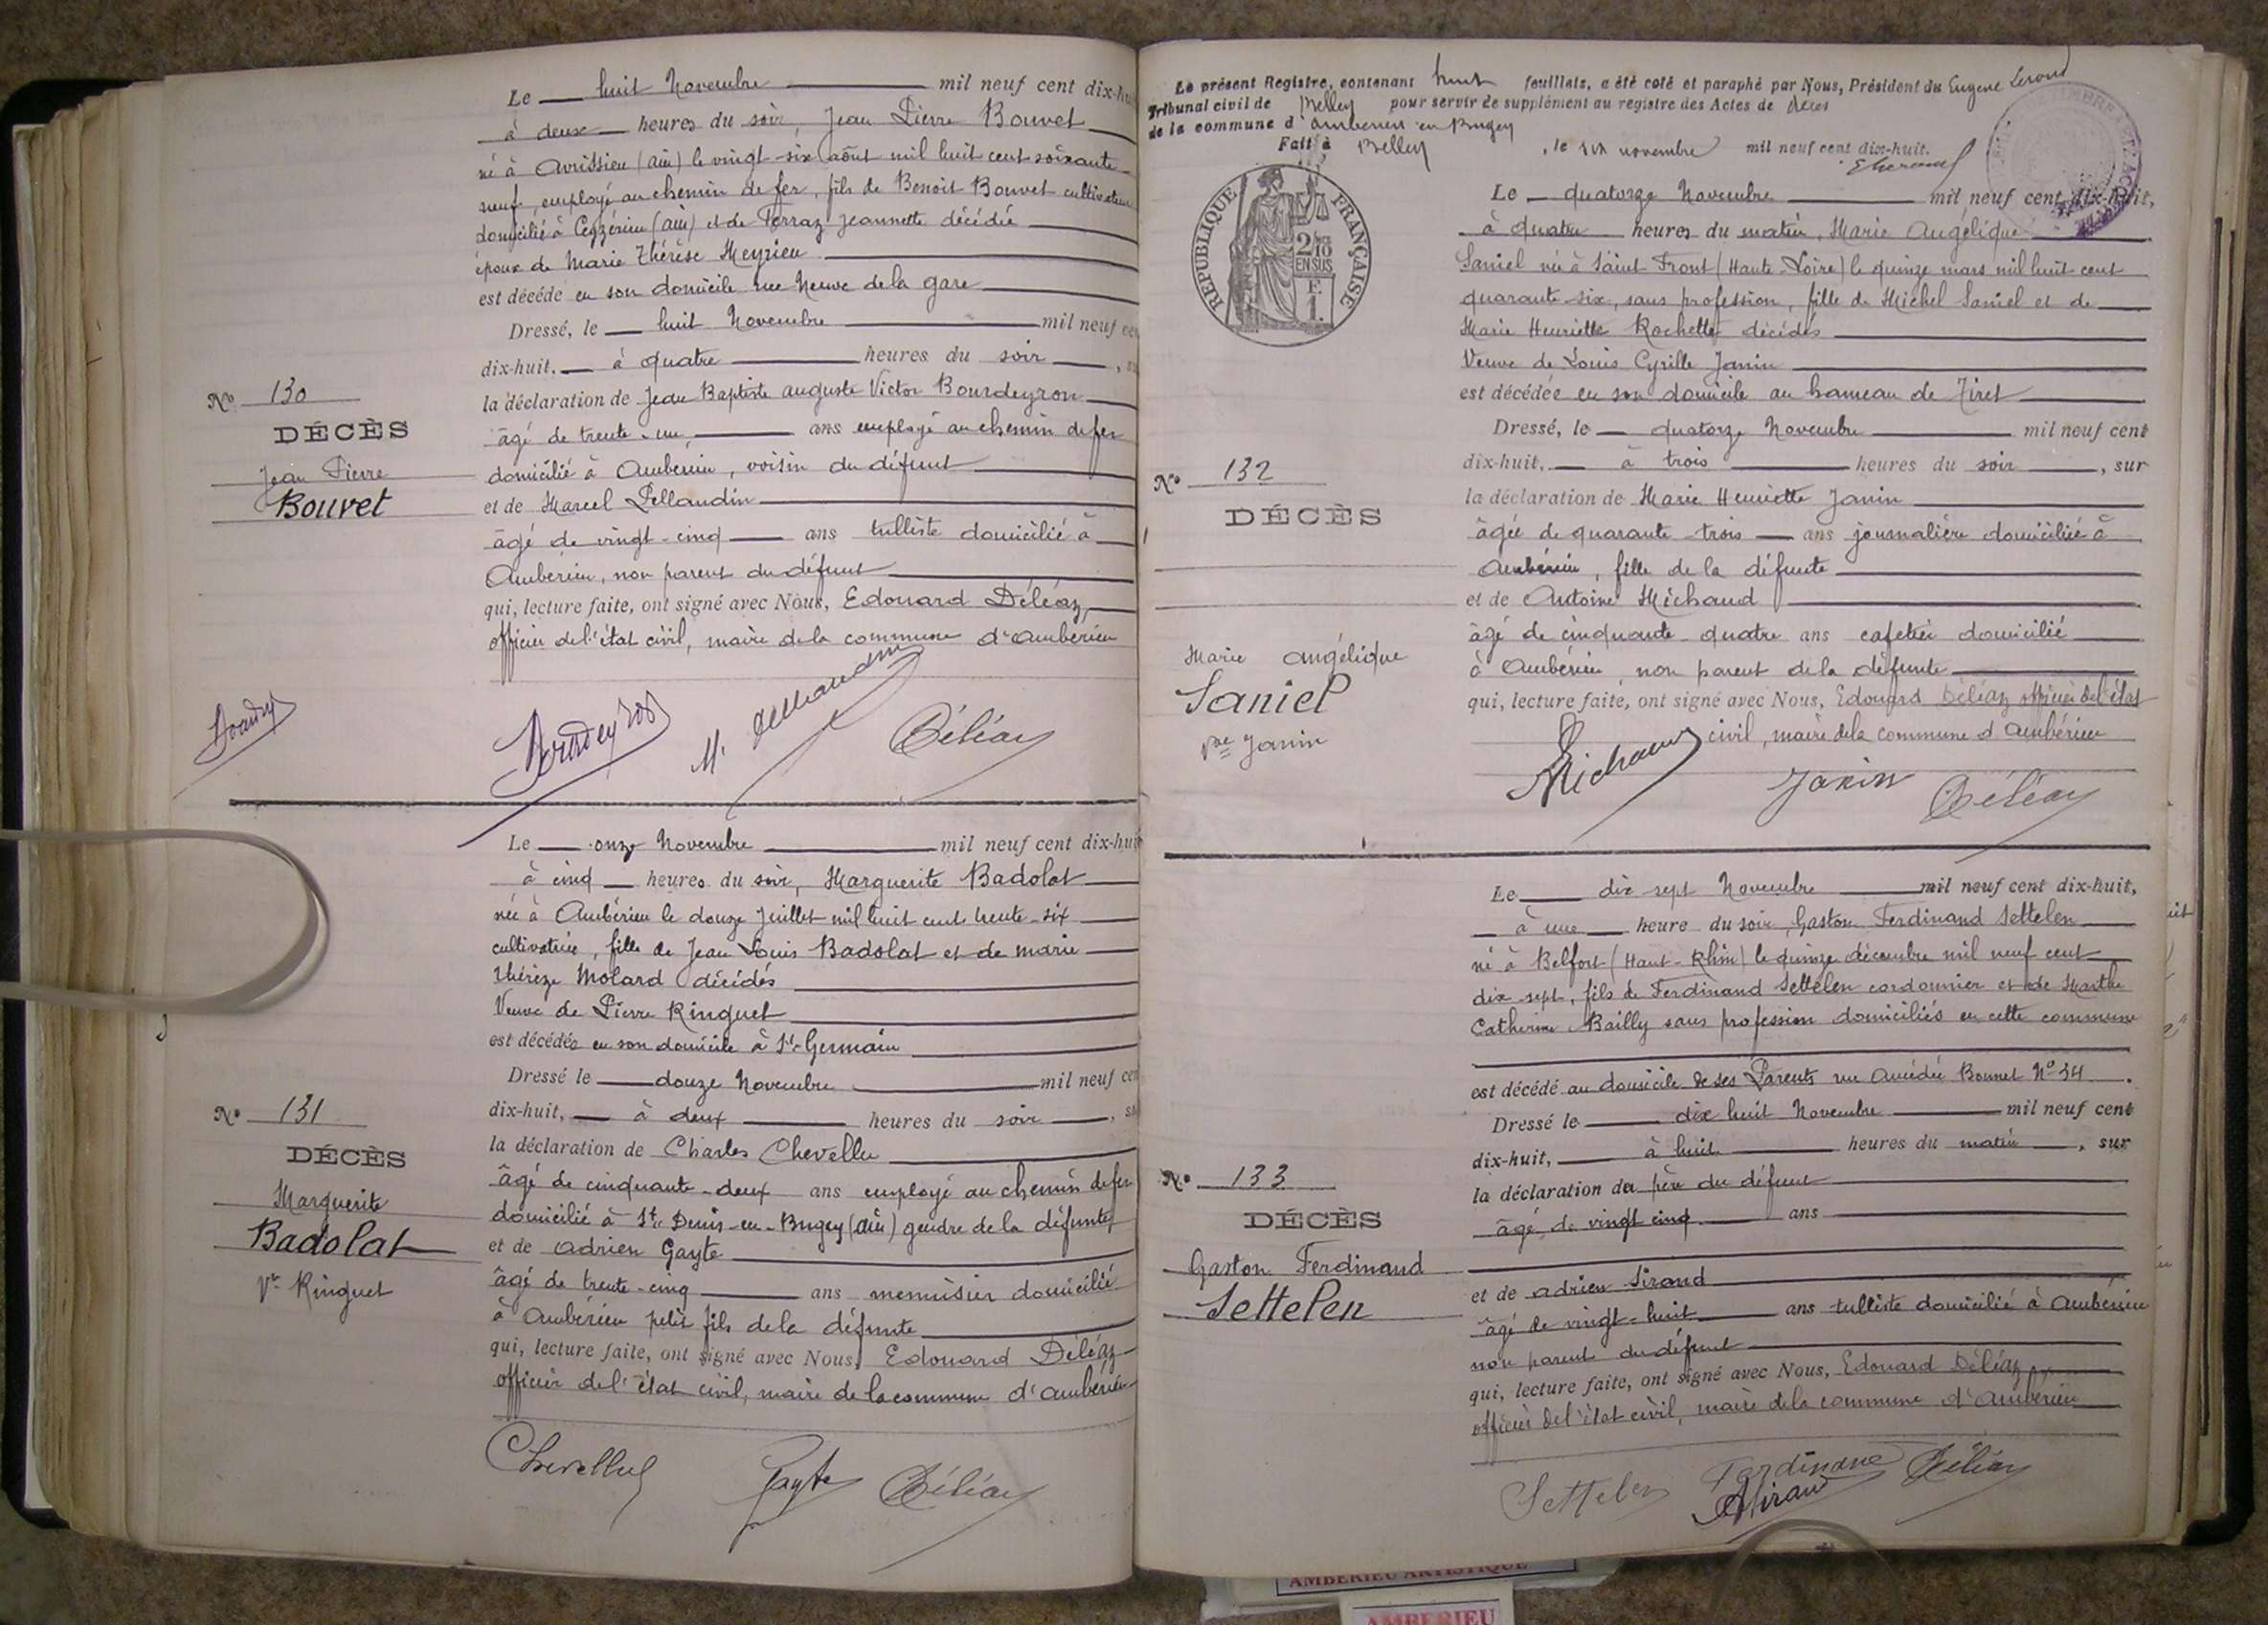 Le huit Novembre mil neuf cent dix-hu
à deux heures du soir, Jean Pierre Bouvet
né à Avrissieu (ain) le vingt-six août mil huit cent soixante-
neuf, employé au chemin de fer, fils de Benoit Bouvet cultivateur
domicilié à Ceyzérieu (ain) et de Terraz Jeannette décédée
époux de Marie Thérèse Meyrieu
est décédé en son domicile rue Neuve de la gare
Dressé, le huit Novembre mil neuf cen
dix-huit, à quatre heures du soir, s
la déclaration de Jean Baptiste auguste Victor Bourdeyron
âgé de trente-un ans employé au chemin de fer
domicilié à Ambérieu, voisin du défunt
et de Marcel Pellaudin
âgé de vingt-cinq ans tulliste domicilié à
Ambérieu, non parent du défunt
qui, lecture faite, ont signé avec Nous, Edouard Déléaz,
officier de l'état civil, maire de la commune d'ambérieu
No 130
DÉCÈS
Jean Pierre
Bouvet
Déléaz
Le onze Novembre mil neuf cent dix-huit
à cinq heures du soir, Marguerite Badolat
née à Ambérieu le douze Juillet mil huit cent trente-six
cultivatrice, fille de Jean Louis Badolat et de marie
thérèze Molard décédés
Veuve de Pierre Ringuet
est décédée en son domicile à St Germain
Dressé le douze Novembre mil neuf cen
dix-huit, à deux heures du soir, s
la déclaration de Charles Chevellu
âgé de cinquante-deux ans employé au chemin de fer
domicilié à St Denis-en-Bugey (ain) gendre de la défunte,
et de adrien Gayte
âgé de trente-cinq ans menuisier domicilié
à Ambérieu petit fils de la défunte
qui, lecture faite, ont signé avec Nous, Edouard Déléaz
officier de l'état civil, maire de la commune d'ambérieu
No 131
DÉCÈS
Marguerite
Badolat
Ve Ringuet
Chevellu Gayte Déléaz
Le présent Registre, contenant huit feuillets, a été coté et paraphé par Nous, Président du
Tribunal civil de Belley pour servir de supplément au registre des Actes de décès
de la commune d'Ambérieu en Bugey
Fait à Belley, le six novembre mil neuf cent dix-huit.
RÉPUBLIQUE FRANÇAISE
2/10 EN SUS
F. 1.
Le quatorze Novembre mil neuf cent dix-huit,
à quatre heures du matin, Marie Angélique
Saniel née à Saint Front (Haute-Loire) le quinze mars mil huit cent
quarante-six, sans profession, fille de Michel Saniel et de
Marie Henriette Rochette décédés
Veuve de Louis Cyrille Janin
est décédée en son domicile au hameau de Tiret
Dressé, le quatorze Novembre mil neuf cent
dix-huit, à trois heures du soir, sur
la déclaration de Marie Henriette Janin
âgée de quarante-trois ans journalière domiciliée à
Ambérieu, fille de la défunte
et de Antoine Michaud
âgé de cinquante-quatre ans cafetier domicilié
à Ambérieu non parent de la défunte
qui, lecture faite, ont signé avec Nous, Edouard Déléaz officier de l'état
civil, maire de la commune d'Ambérieu
No 132
DÉCÈS
Marie angélique
Saniel
Vve Janin
Michaud Janin Déléaz
Le dix sept Novembre mil neuf cent dix-huit,
à une heure du soir, Gaston Ferdinand Settelen
né à Belfort (Haut-Rhin) le quinze décembre mil neuf cent
dix-sept, fils de Ferdinand Settelen cordonnier et de Marthe
Catherine Bailly sans profession domiciliés en cette commune
est décédé au domicile de ses Parents rue Amédée Bonnet No 34
Dressé le dix huit Novembre mil neuf cent
dix-huit, à huit heures du matin, sur
la déclaration du père du défunt
âgé de vingt cinq ans
et de adrien Sirand
âgé de vingt-huit ans tulliste domicilié à Ambérieu
non parent du défunt
qui, lecture faite, ont signé avec Nous, Edouard Déléaz
officier de l'état civil, maire de la commune d'Ambérieu
No 133
DÉCÈS
Gaston Ferdinand
Settelen
Settelen Ferdinand Déléaz
ASirand
AMBERIEU ARTISTIQUE
AMBERIEU